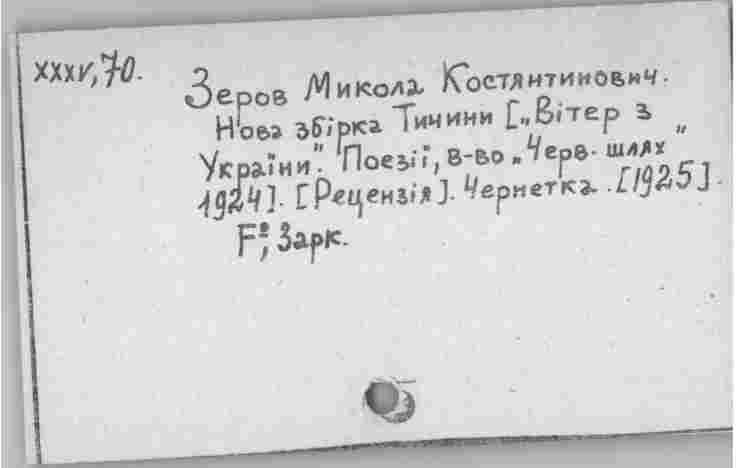 XXXV, 70.
Зеров Микола Костянтинович.
Нова збірка Тичини [„Вітер з
України". Поезії, в-во „Черв. шлях"
1924]. [Рецензія]. Чернетка. [1925].
F°, 3 арк.